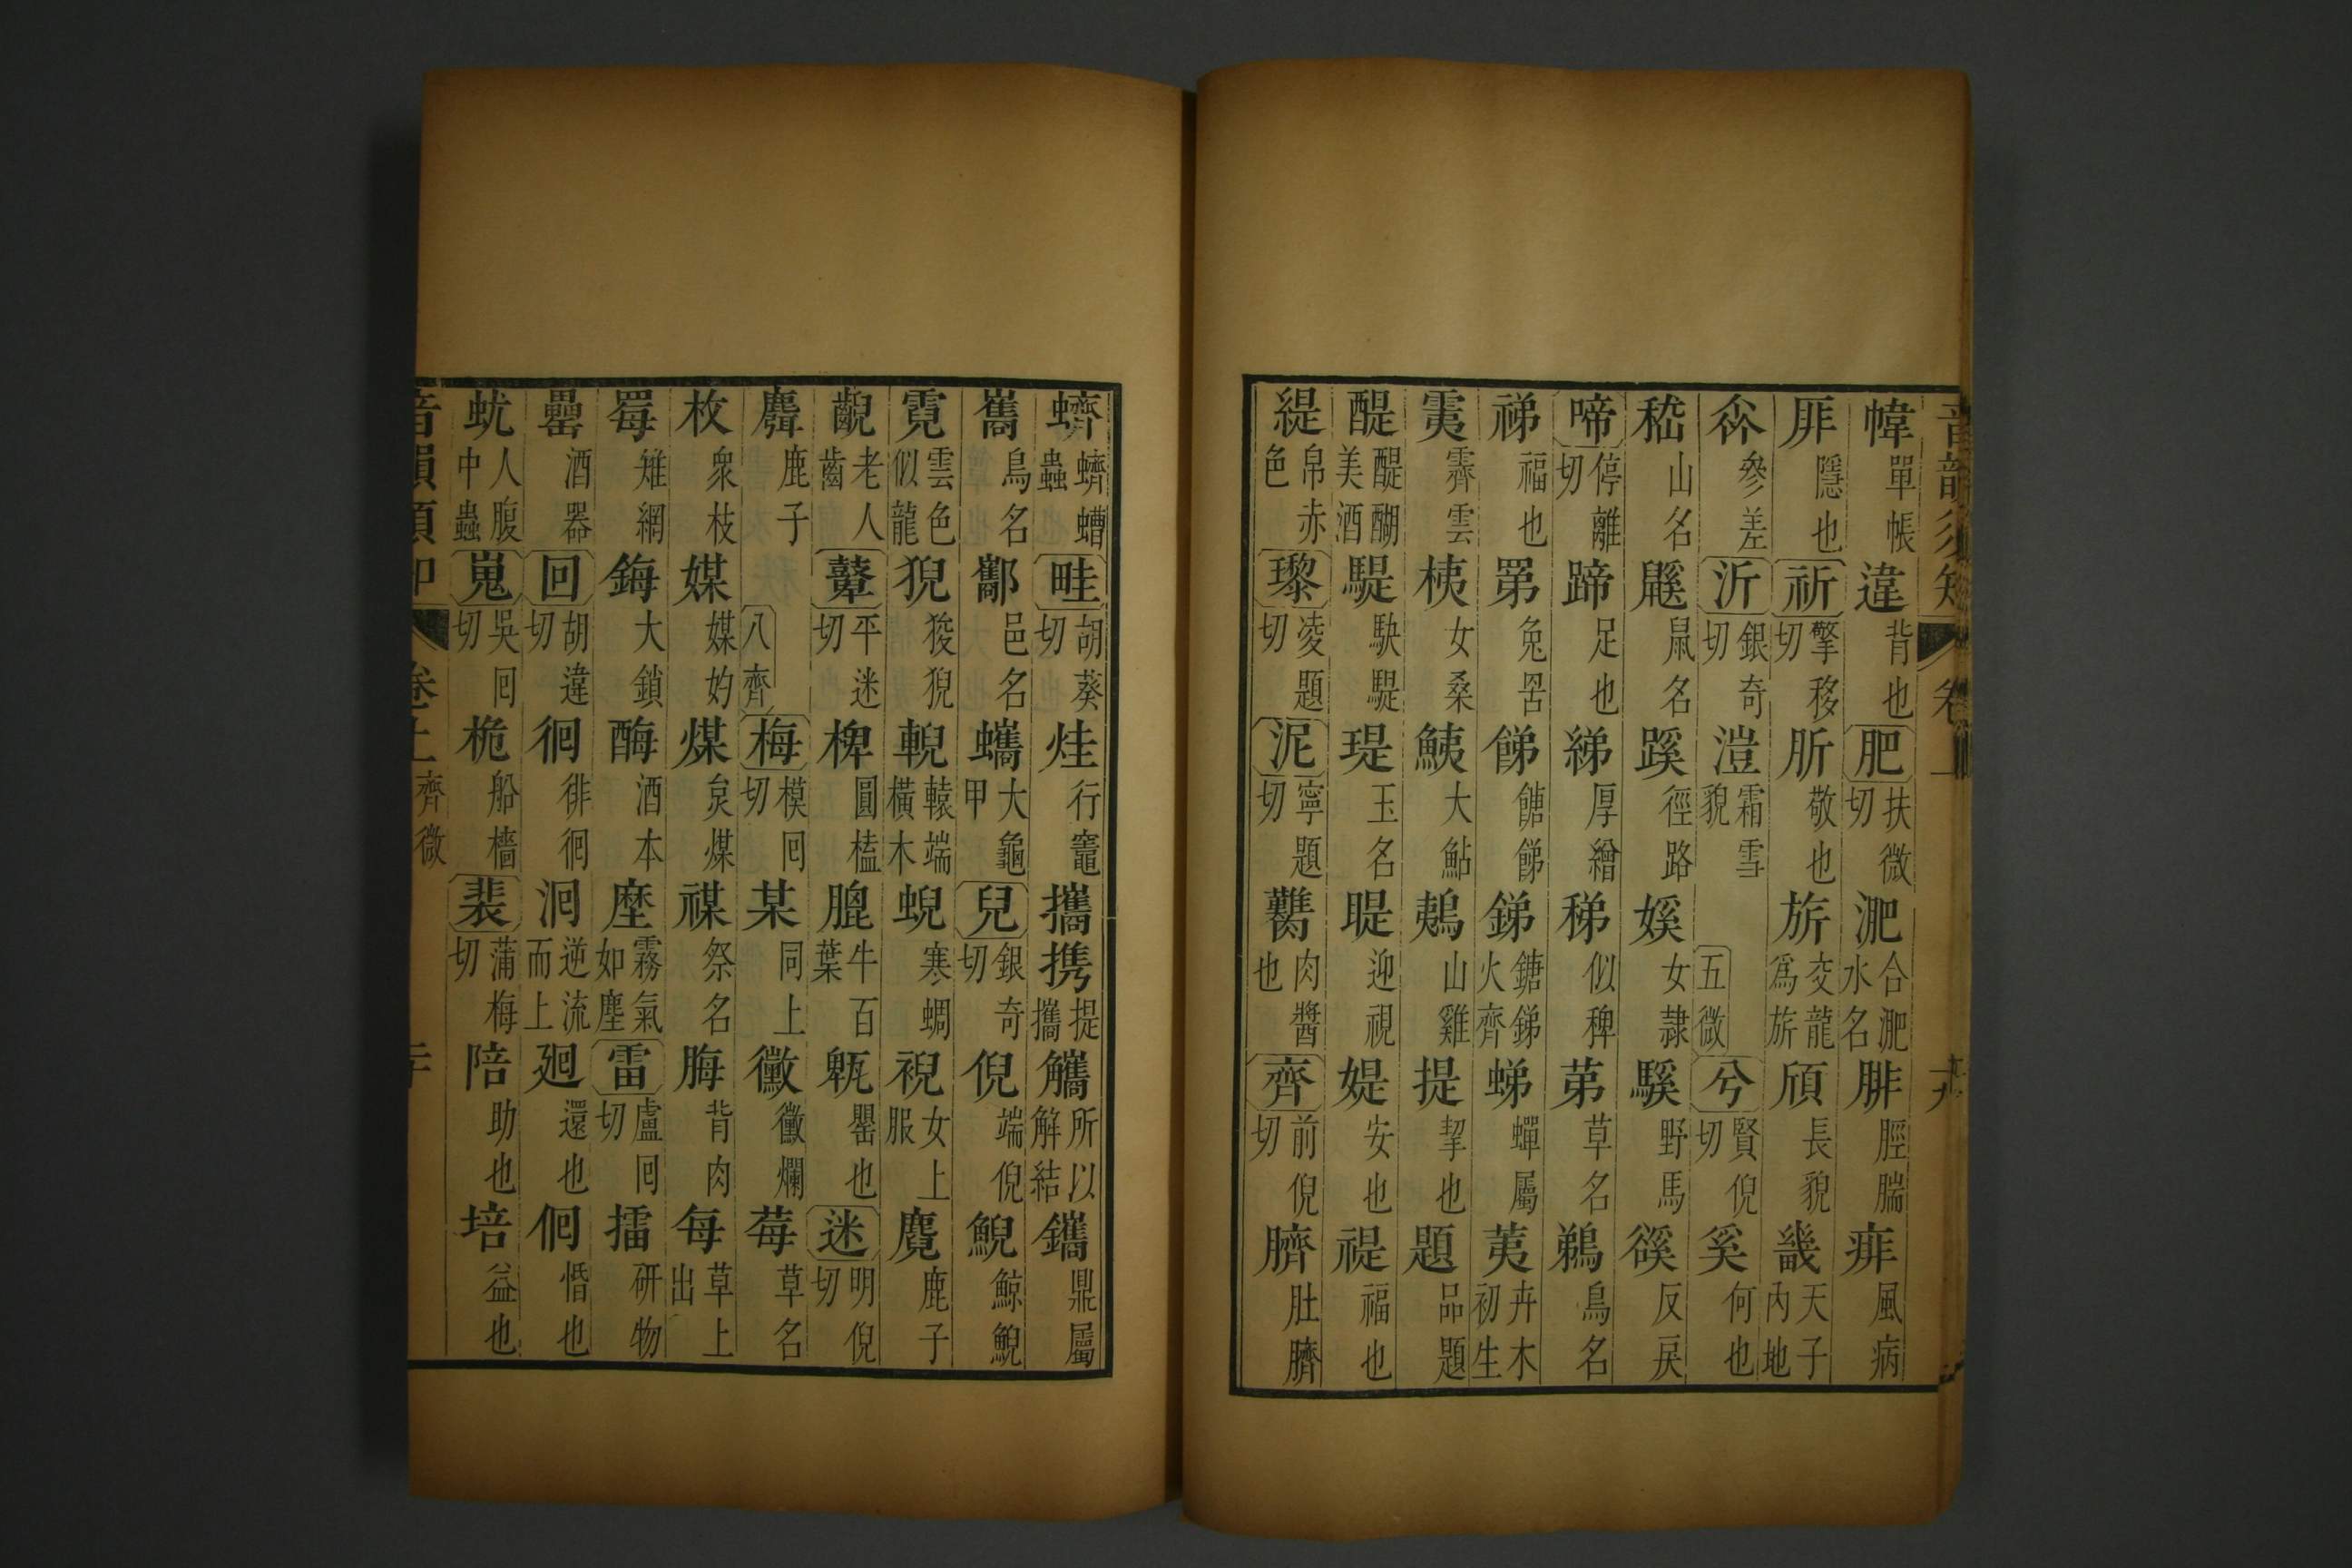 音韻須知 卷上 十九
幃單帳 違背也 肥扶微切 淝合淝水名 腓脛腨 痱風病
厞隱也 祈擎移切 肵敬也 旂交龍爲旂 頎長貌 畿天子內地
参差 沂銀奇切 溰霜雪貌 五微 兮賢倪切 奚何也
嵇山名 鼷鼠名 蹊徑路 媐女隷 騱野馬 徯反戻
啼停離切 蹄足也 綈厚繒 稊似稗 苐草名 鵜鳥名
禘福也 罤兔罟 䬾餹䬾 銻鎕銻火齊 蝭蟬屬 荑卉木初生
霬霽雲 桋女桑 鮧大鮎 鴺山雞 提挈也 題品題
醍醍醐美酒 騠駃騠 瑅玉名 眡迎視 媞安也 禔福也
緹帛赤色 瓈凌題切 泥寧題切 臡肉醬也 齊前倪切 臍肚臍
蠐蠐螬蟲 畦胡葵切 烓行竈 攜携提攜 觿所以解結 鑴鼎屬
巂鳥名 酅邑名 蠵大龜甲 兒銀奇切 倪端倪 鯢鯨鯢
霓雲色似龍 猊狻猊 輗轅端橫木 蜺寒蜩 裞女上服 麑鹿子
齯老人齒 鼙平迷切 椑圓榼 膍牛百葉 甈罌也 迷明倪切
麛鹿子 八齊 梅模囘切 某同上 黴黴爛 莓草名
枚衆枝 媒媒妁 煤炱煤 禖祭名 脢背肉 每草上出
罞雉網 鋂大鎖 酶酒本 塺霧氣如塵 雷盧囘切 擂研物
罍酒器 回胡違切 徊徘徊 洄逆流而上 廻還也 佪惛也
蚘人腹中蟲 嵬吳囘切 桅船檣 裴蒲梅切 陪助也 培益也
音韻須知 卷上 齊微 二十